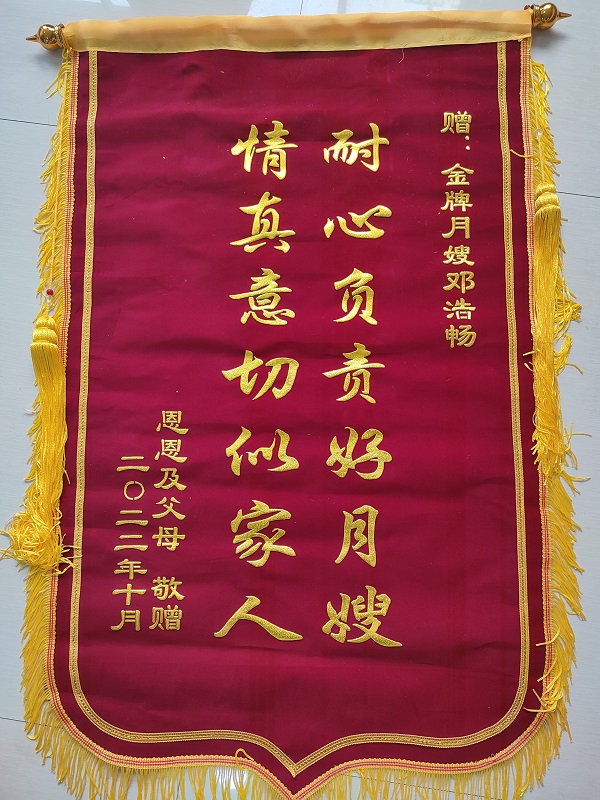 赠：金牌月嫂邓浩畅
耐心负责好月嫂
情真意切似家人
恩恩及父母 敬赠
二〇二二年十月